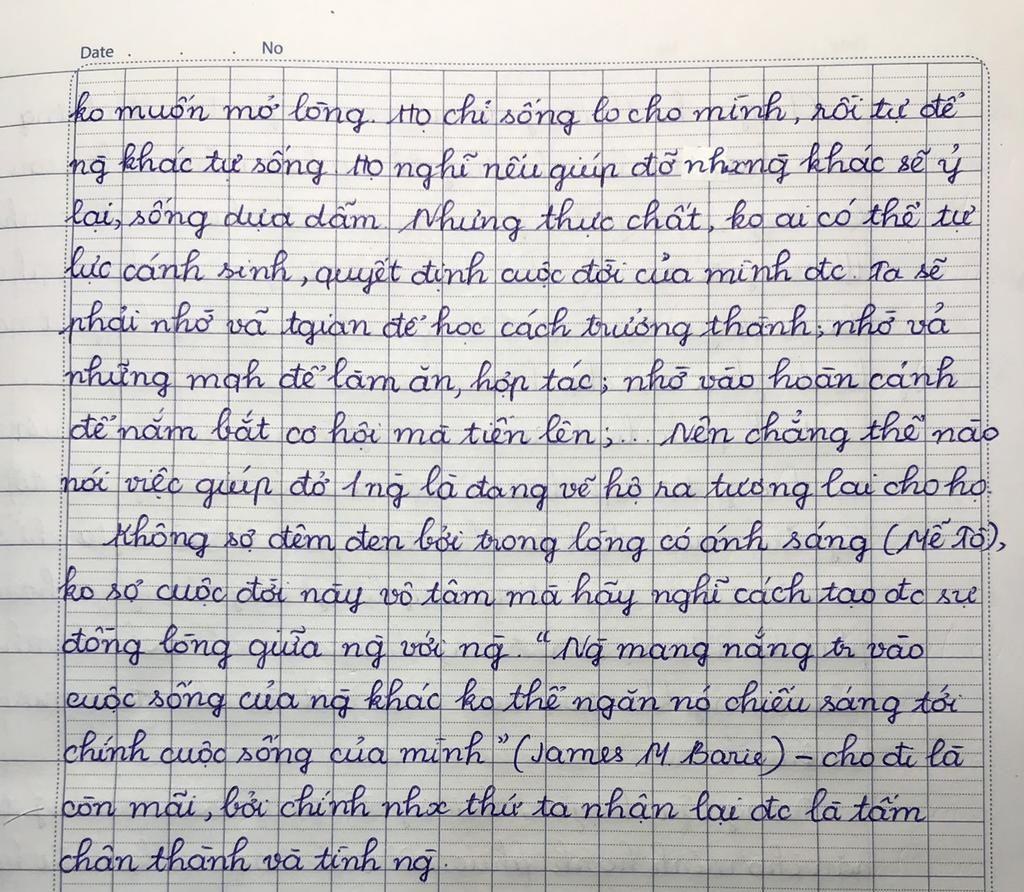 Date . . . No
ko muốn mở lòng. Họ chỉ sống lo cho mình, rồi tự để
ng̃ khác tự sống. Họ nghĩ nếu giúp đỡ nhxng̃ khác sẽ ỷ
lại, sống dựa dẫm. Nhưng thực chất, ko ai có thể tự
lực cánh sinh, quyết định cuộc đời của mình đc. Ta sẽ
phải nhờ và tgian để học cách trưởng thành; nhờ và
những mqh để làm ăn, hợp tác; nhờ vào hoàn cảnh
để nắm bắt cơ hội mà tiến lên;... Nên chẳng thể nào
nói việc giúp đỡ 1 ng̃ là đang vẽ hộ ra tương lai cho họ.
Không sợ đêm đen bởi trong lòng có ánh sáng (Mễ Tô),
ko sợ cuộc đời này vô tâm mà hãy nghĩ cách tạo đc sự
đồng lòng giữa ng̃ với ng̃. "Ng̃ mang nắng tr vào
cuộc sống của ng̃ khác ko thể ngăn nó chiếu sáng tới
chính cuộc sống của mình" (James M Barie) - cho đi là
còn mãi, bởi chính nhx thứ ta nhận lại đc là tấm
chân thành và tình ng̃.